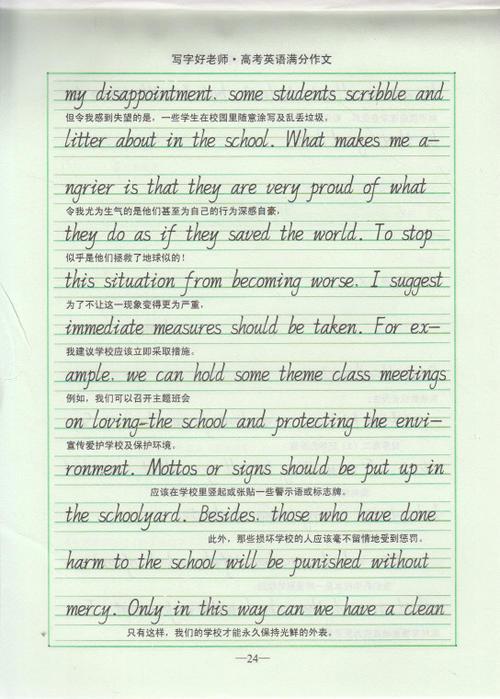 写字好老师·高考英语满分作文
my disappointment, some students scribble and
但令我感到失望的是，一些学生在校园里随意涂写及乱丢垃圾。
litter about in the school. What makes me a-
ngrier is that they are very proud of what
令我尤为生气的是他们甚至为自己的行为深感自豪，
they do as if they saved the world. To stop
似乎是他们拯救了地球似的！
this situation from becoming worse, I suggest
为了不让这一现象变得更为严重，
immediate measures should be taken. For ex-
我建议学校应该立即采取措施。
ample, we can hold some theme class meetings
例如，我们可以召开主题班会
on loving-the school and protecting the envi-
宣传爱护学校及保护环境。
ronment. Mottos or signs should be put up in
应该在学校里竖起或张贴一些警示语或标志牌。
the schoolyard. Besides, those who have done
此外，那些损坏学校的人应该毫不留情地受到惩罚。
harm to the school will be punished without
mercy. Only in this way can we have a clean
只有这样，我们的学校才能永久保持光鲜的外表。
—24—